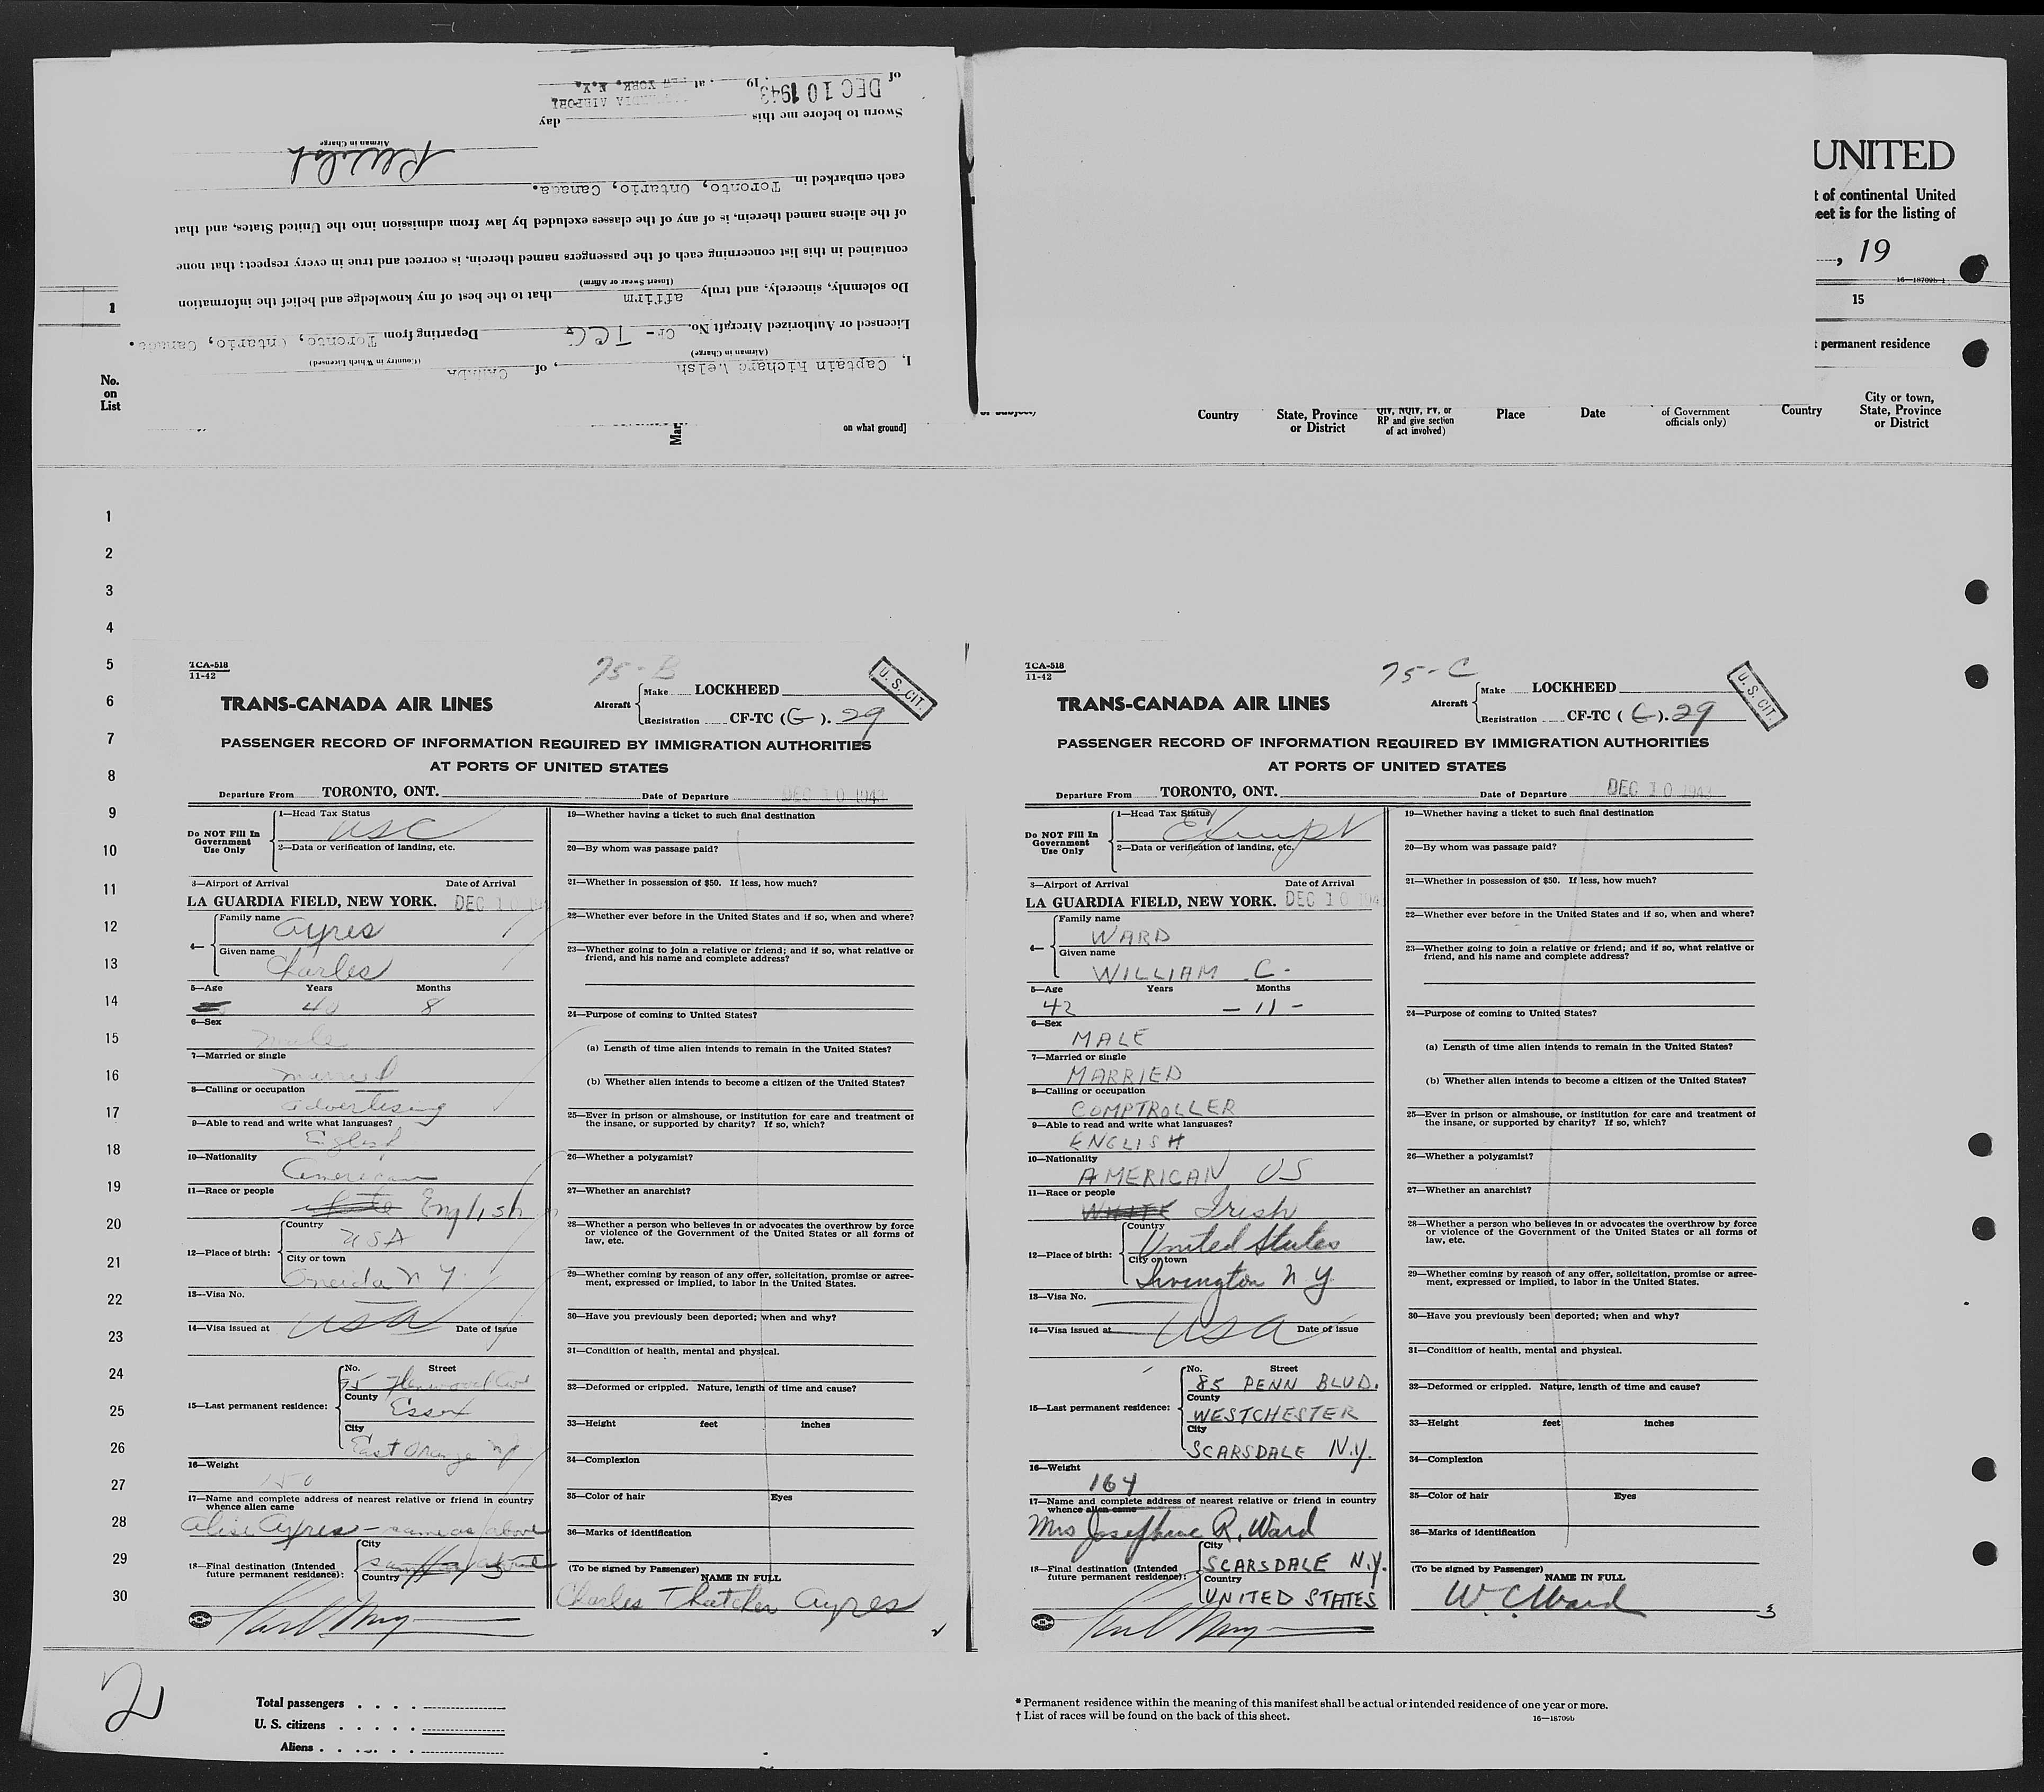 I, Captain Richard Welsh, of CANADA
(Airman in Charge) (Country in Which Licensed)
Licensed or Authorized Aircraft No. CF-TCG Departing from Toronto, Ontario, Canada.
Do solemnly, sincerely, and truly affirm that to the best of my knowledge and belief the information
(Insert Swear or Affirm)
contained in this list concerning each of the passengers named therein, is correct and true in every respect; that none
of the aliens named therein, is of any of the classes excluded by law from admission into the United States, and that
each embarked in Toronto, Ontario, Canada.
Airman in Charge
Sworn to before me this day
of DEC 10 1943 19 , at NEW YORK, N.Y.
AIRPORT
UNITED
t of continental United
eet is for the listing of
, 19
16—18709b-1
1
15
t permanent residence
No.
on
List
on what ground]
Country
State, Province
or District
QIV, NQIV, PV, or
RP and give section
of act involved)
Place
Date
of Government
officials only)
Country
City or town,
State, Province
or District
1
2
3
4
5
6
7
8
9
10
11
12
13
14
15
16
17
18
19
20
21
22
23
24
25
26
27
28
29
30
TCA-518
11-42
75-B
U. S. CIT.
TRANS-CANADA AIR LINES
Aircraft
Make LOCKHEED
Registration CF-TC (G). 29
PASSENGER RECORD OF INFORMATION REQUIRED BY IMMIGRATION AUTHORITIES
AT PORTS OF UNITED STATES
Departure From TORONTO, ONT. Date of Departure DEC 10 1943
Do NOT Fill In
Government
Use Only
1—Head Tax Status
USC
2—Data or verification of landing, etc.
3—Airport of Arrival Date of Arrival
LA GUARDIA FIELD, NEW YORK. DEC 10 19
4—
Family name
Ayres
Given name
Charles
5—Age Years Months
40 8
6—Sex
male
7—Married or single
married
8—Calling or occupation
advertising
9—Able to read and write what languages?
English
10—Nationality
American
11—Race or people
white English
12—Place of birth:
Country
USA
City or town
Oneida N Y.
13—Visa No.
14—Visa issued at USA Date of issue
15—Last permanent residence:
No. Street
75
County
Essex
City
East Orange NJ
16—Weight
150
17—Name and complete address of nearest relative or friend in country
whence alien came
Alise Ayres – same as above
18—Final destination (Intended
future permanent residence):
City
Country
19—Whether having a ticket to such final destination
20—By whom was passage paid?
21—Whether in possession of $50. If less, how much?
22—Whether ever before in the United States and if so, when and where?
23—Whether going to join a relative or friend; and if so, what relative or
friend, and his name and complete address?
24—Purpose of coming to United States?
(a) Length of time alien intends to remain in the United States?
(b) Whether alien intends to become a citizen of the United States?
25—Ever in prison or almshouse, or institution for care and treatment of
the insane, or supported by charity? If so, which?
26—Whether a polygamist?
27—Whether an anarchist?
28—Whether a person who believes in or advocates the overthrow by force
or violence of the Government of the United States or all forms of
law, etc.
29—Whether coming by reason of any offer, solicitation, promise or agree-
ment, expressed or implied, to labor in the United States.
30—Have you previously been deported; when and why?
31—Condition of health, mental and physical.
32—Deformed or crippled. Nature, length of time and cause?
33—Height feet inches
34—Complexion
35—Color of hair Eyes
36—Marks of identification
(To be signed by Passenger)
NAME IN FULL
Charles Thatcher Ayres
TCA-518
11-42
75-C
U. S. CIT.
TRANS-CANADA AIR LINES
Aircraft
Make LOCKHEED
Registration CF-TC (G). 29
PASSENGER RECORD OF INFORMATION REQUIRED BY IMMIGRATION AUTHORITIES
AT PORTS OF UNITED STATES
Departure From TORONTO, ONT. Date of Departure DEC 10 1943
Do NOT Fill In
Government
Use Only
1—Head Tax Status
Exempt
2—Data or verification of landing, etc.
3—Airport of Arrival Date of Arrival
LA GUARDIA FIELD, NEW YORK. DEC 10 194
4—
Family name
WARD
Given name
WILLIAM C.
5—Age Years Months
42 – 11 –
6—Sex
MALE
7—Married or single
MARRIED
8—Calling or occupation
COMPTROLLER
9—Able to read and write what languages?
ENGLISH
10—Nationality
AMERICAN US
11—Race or people
WHITE Irish
12—Place of birth:
Country
United States
City or town
Irvington N. Y.
13—Visa No.
14—Visa issued at USA Date of issue
15—Last permanent residence:
No. Street
85 PENN BLVD.
County
WESTCHESTER
City
SCARSDALE N.Y.
16—Weight
164
17—Name and complete address of nearest relative or friend in country
whence alien came
Mrs Josephine R. Ward
18—Final destination (Intended
future permanent residence):
City
SCARSDALE N.Y.
Country
UNITED STATES
19—Whether having a ticket to such final destination
20—By whom was passage paid?
21—Whether in possession of $50. If less, how much?
22—Whether ever before in the United States and if so, when and where?
23—Whether going to join a relative or friend; and if so, what relative or
friend, and his name and complete address?
24—Purpose of coming to United States?
(a) Length of time alien intends to remain in the United States?
(b) Whether alien intends to become a citizen of the United States?
25—Ever in prison or almshouse, or institution for care and treatment of
the insane, or supported by charity? If so, which?
26—Whether a polygamist?
27—Whether an anarchist?
28—Whether a person who believes in or advocates the overthrow by force
or violence of the Government of the United States or all forms of
law, etc.
29—Whether coming by reason of any offer, solicitation, promise or agree-
ment, expressed or implied, to labor in the United States.
30—Have you previously been deported; when and why?
31—Condition of health, mental and physical.
32—Deformed or crippled. Nature, length of time and cause?
33—Height feet inches
34—Complexion
35—Color of hair Eyes
36—Marks of identification
(To be signed by Passenger)
NAME IN FULL
W. C. Ward
3
2
Total passengers
U. S. citizens
Aliens
* Permanent residence within the meaning of this manifest shall be actual or intended residence of one year or more.
† List of races will be found on the back of this sheet.
16—18709b